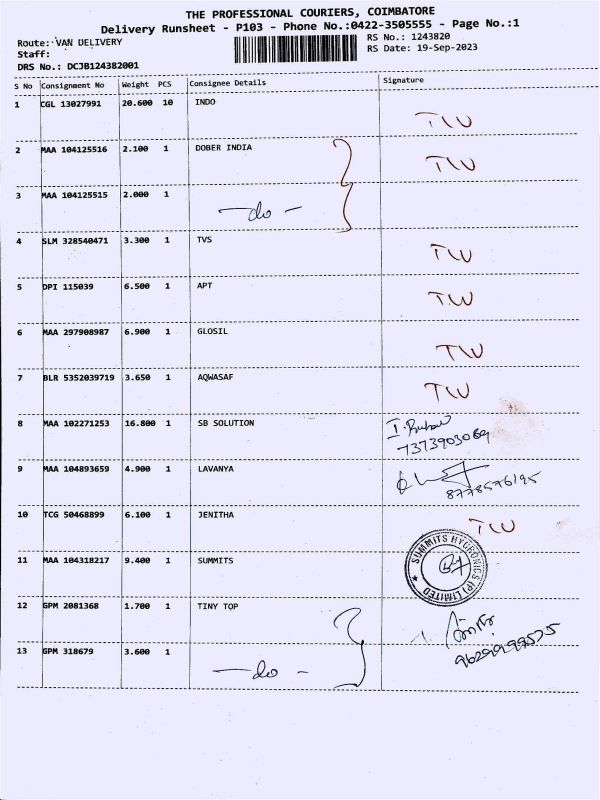 THE PROFESSIONAL COURIERS, COIMBATORE
Delivery Runsheet - P103 - Phone No.:0422-3505555 - Page No.:1
Route: VAN DELIVERY
RS No.: 1243820
Staff:
RS Date: 19-Sep-2023
DRS No.: DCJB124382001
S No Consignment No Weight PCS Consignee Details Signature
1 CGL 13027991 20.600 10 INDO TW
2 MAA 104125516 2.100 1 DOBER INDIA TW
3 MAA 104125515 2.000 1 —do—
4 SLM 328540471 3.300 1 TVS TW
5 DPI 115039 6.500 1 APT TW
6 MAA 297908987 6.900 1 GLOSIL TW
7 BLR 5352039719 3.650 1 AQWASAF TW
8 MAA 102271253 16.800 1 SB SOLUTION
7373903069
9 MAA 104893659 4.900 1 LAVANYA
8778576195
10 TCG 50468899 6.100 1 JENITHA TW
11 MAA 104318217 9.400 1 SUMMITS
SUMMITS HYGRONICS (P) LIMITED
12 GPM 2081368 1.700 1 TINY TOP
13 GPM 318679 3.600 1 —do—